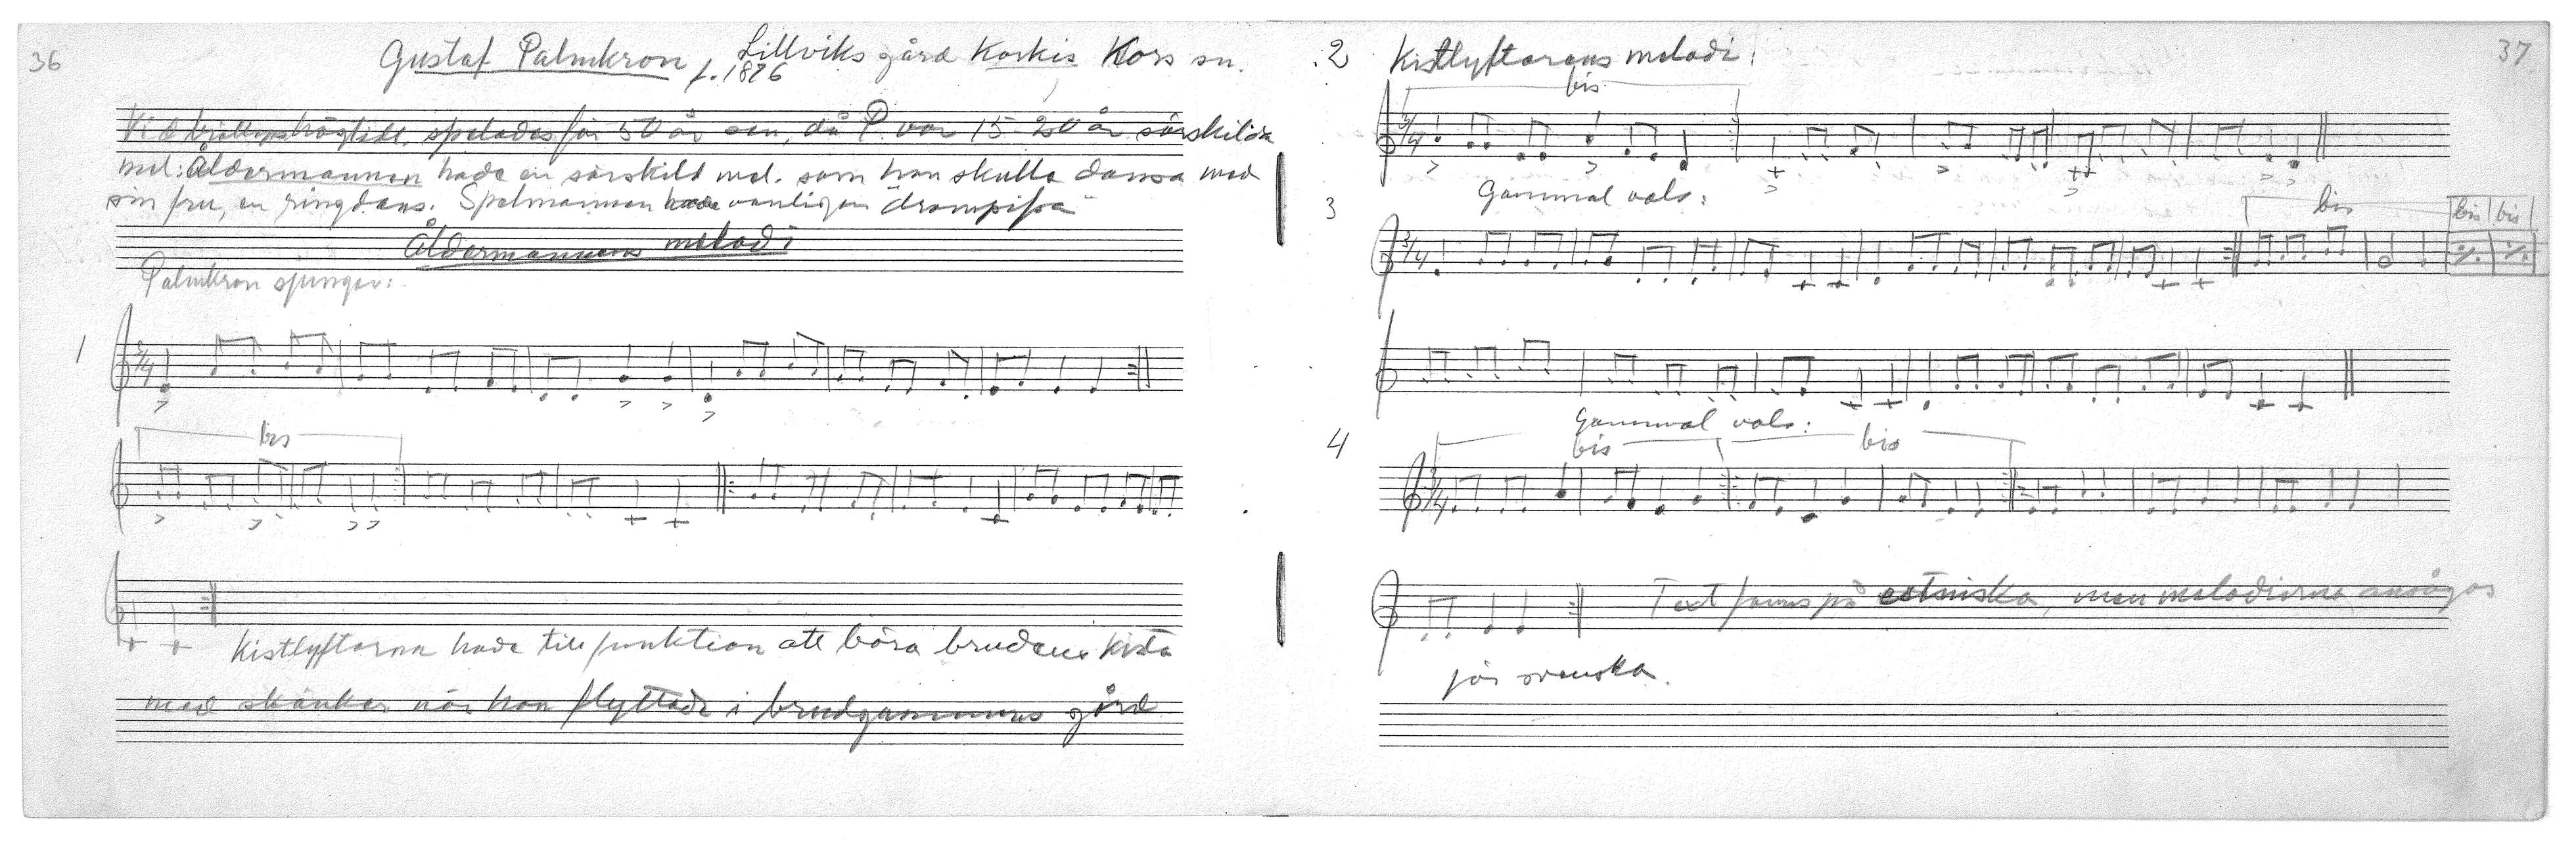 36
Gustaf Palmkron f. 1876 Lillviks gård Korkis Kors sn.
Vid bröllopshögtid. spelades för 50 år sen, då P. var 15-20 år särskilda
mel: Åldermannen hade en särskild mel. som han skulle dansa med
sin fru, en ringdans. Spelmannen hade vanligen "drompipa"
Åldermannens melodi
Palmkron sjunger:
1
3/4
bis
Kistlyftarna hade till funktion att bära brudens kista
med skänker när hon flyttade i brudgummens gård
37
2 Kistlyftarens melodi:
bis
3/4
Gammal vals:
3
bis bis bis
3/4
Gammal vals:
4
bis bis
3/4
Text fanns på estniska, men melodierna ansågos
för svenska.